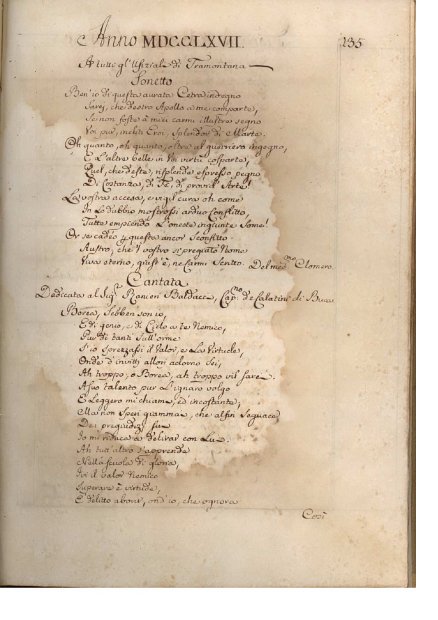 Anno MDCCLXVII.
135
A tutti gl'Ufiziali di Tramontana
Sonetto
Ben'io di questa aurata Cetra indegno
Sarei, che deotro Apollo a me comparte,
Se non foste a' miei carmi illustre segno
Voi pur, incliti Eroi, Splendor di Marte.
Oh quanto, oh quanto, oltre al guerriero ingegno,
E L'altre belle in Voi virtù cosparte,
Quel, che desta, risplende espresso pegno
Di Costanza, di Fè, di prova d'Arte!
La vostra accesa, e vigil cura oh come
In Lo dubbio mostrossi arduo Conflitto,
Tutte empiendo L'oneste ingiunte Some!
Or se cadeo questa ancor Sconfitto
Austro, che 'l vostro si pregiato Nome
Viva eterno, quist' è, ne' Carmi Scritto. Del med.mo Clomero.
Cantata
Dedicata al Sig.r Ranieri Baldacci, Cap.no de Calatini di Bura
Borea, sebben son io,
E di genio, e di Cielo a te Nemico,
Pur di tanti Sull'orme
S'io sprezzassi il Valor, e La Virtude,
Onde d'invitti allori adorno Sei,
Ah troppo, o Borea, ah troppo vil sarei.
A suo talento pur L'ignaro volgo
E Leggero mi chiami, ed incostante;
Ma non speri giammai, che alfin Seguace
De' pregiudizj suoi
Io mi riduca a delirar con Lui.
Ah tutt'altro s'apprende
Nella scuola di gloria,
Ivi il valor Nemico
Superare è virtude,
È delitto aborir, ond'io, che ognora
Così